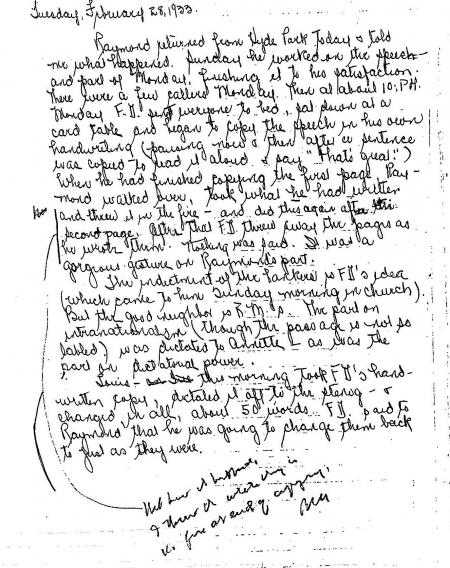 Tuesday, February 28, 1933.
Raymond returned from Hyde Park today & told
me what happened. Sunday he worked on the speech -
and part of Monday, finishing it to his satisfaction.
There were a few callers Monday. Then at about 10: P.M.
Monday F.D. sent everyone to bed, sat down at a
card table and began to copy the speech in his own
handwriting (pausing now & then after a sentence
was copied to read it aloud & say "That's great.")
When he had finished copying the first page, Ray-
mond walked over, took what he had written
and threw it in the fire - and did this again after the
second page. After that F.D. threw away the pages as
he wrote them. Nothing was said. It was a
gorgeous gesture on Raymond's part.
The indictment of the bankers is F.D.'s idea
(which came to him Sunday morning in church).
But the good neighbor is R.M.'s. The part on
intranationalism (though the passage is not so
labled) was dictated to Annette - as was the
part on dictatorial power.
Louis - this morning took F.D.'s hand-
written copy, dictated it off to the stenog - &
changed, in all, about 50 words. F.D. said to
Raymond that he was going to change them back
to just as they were.
it happened,
I threw it whole thing in
the fire at end of copying.